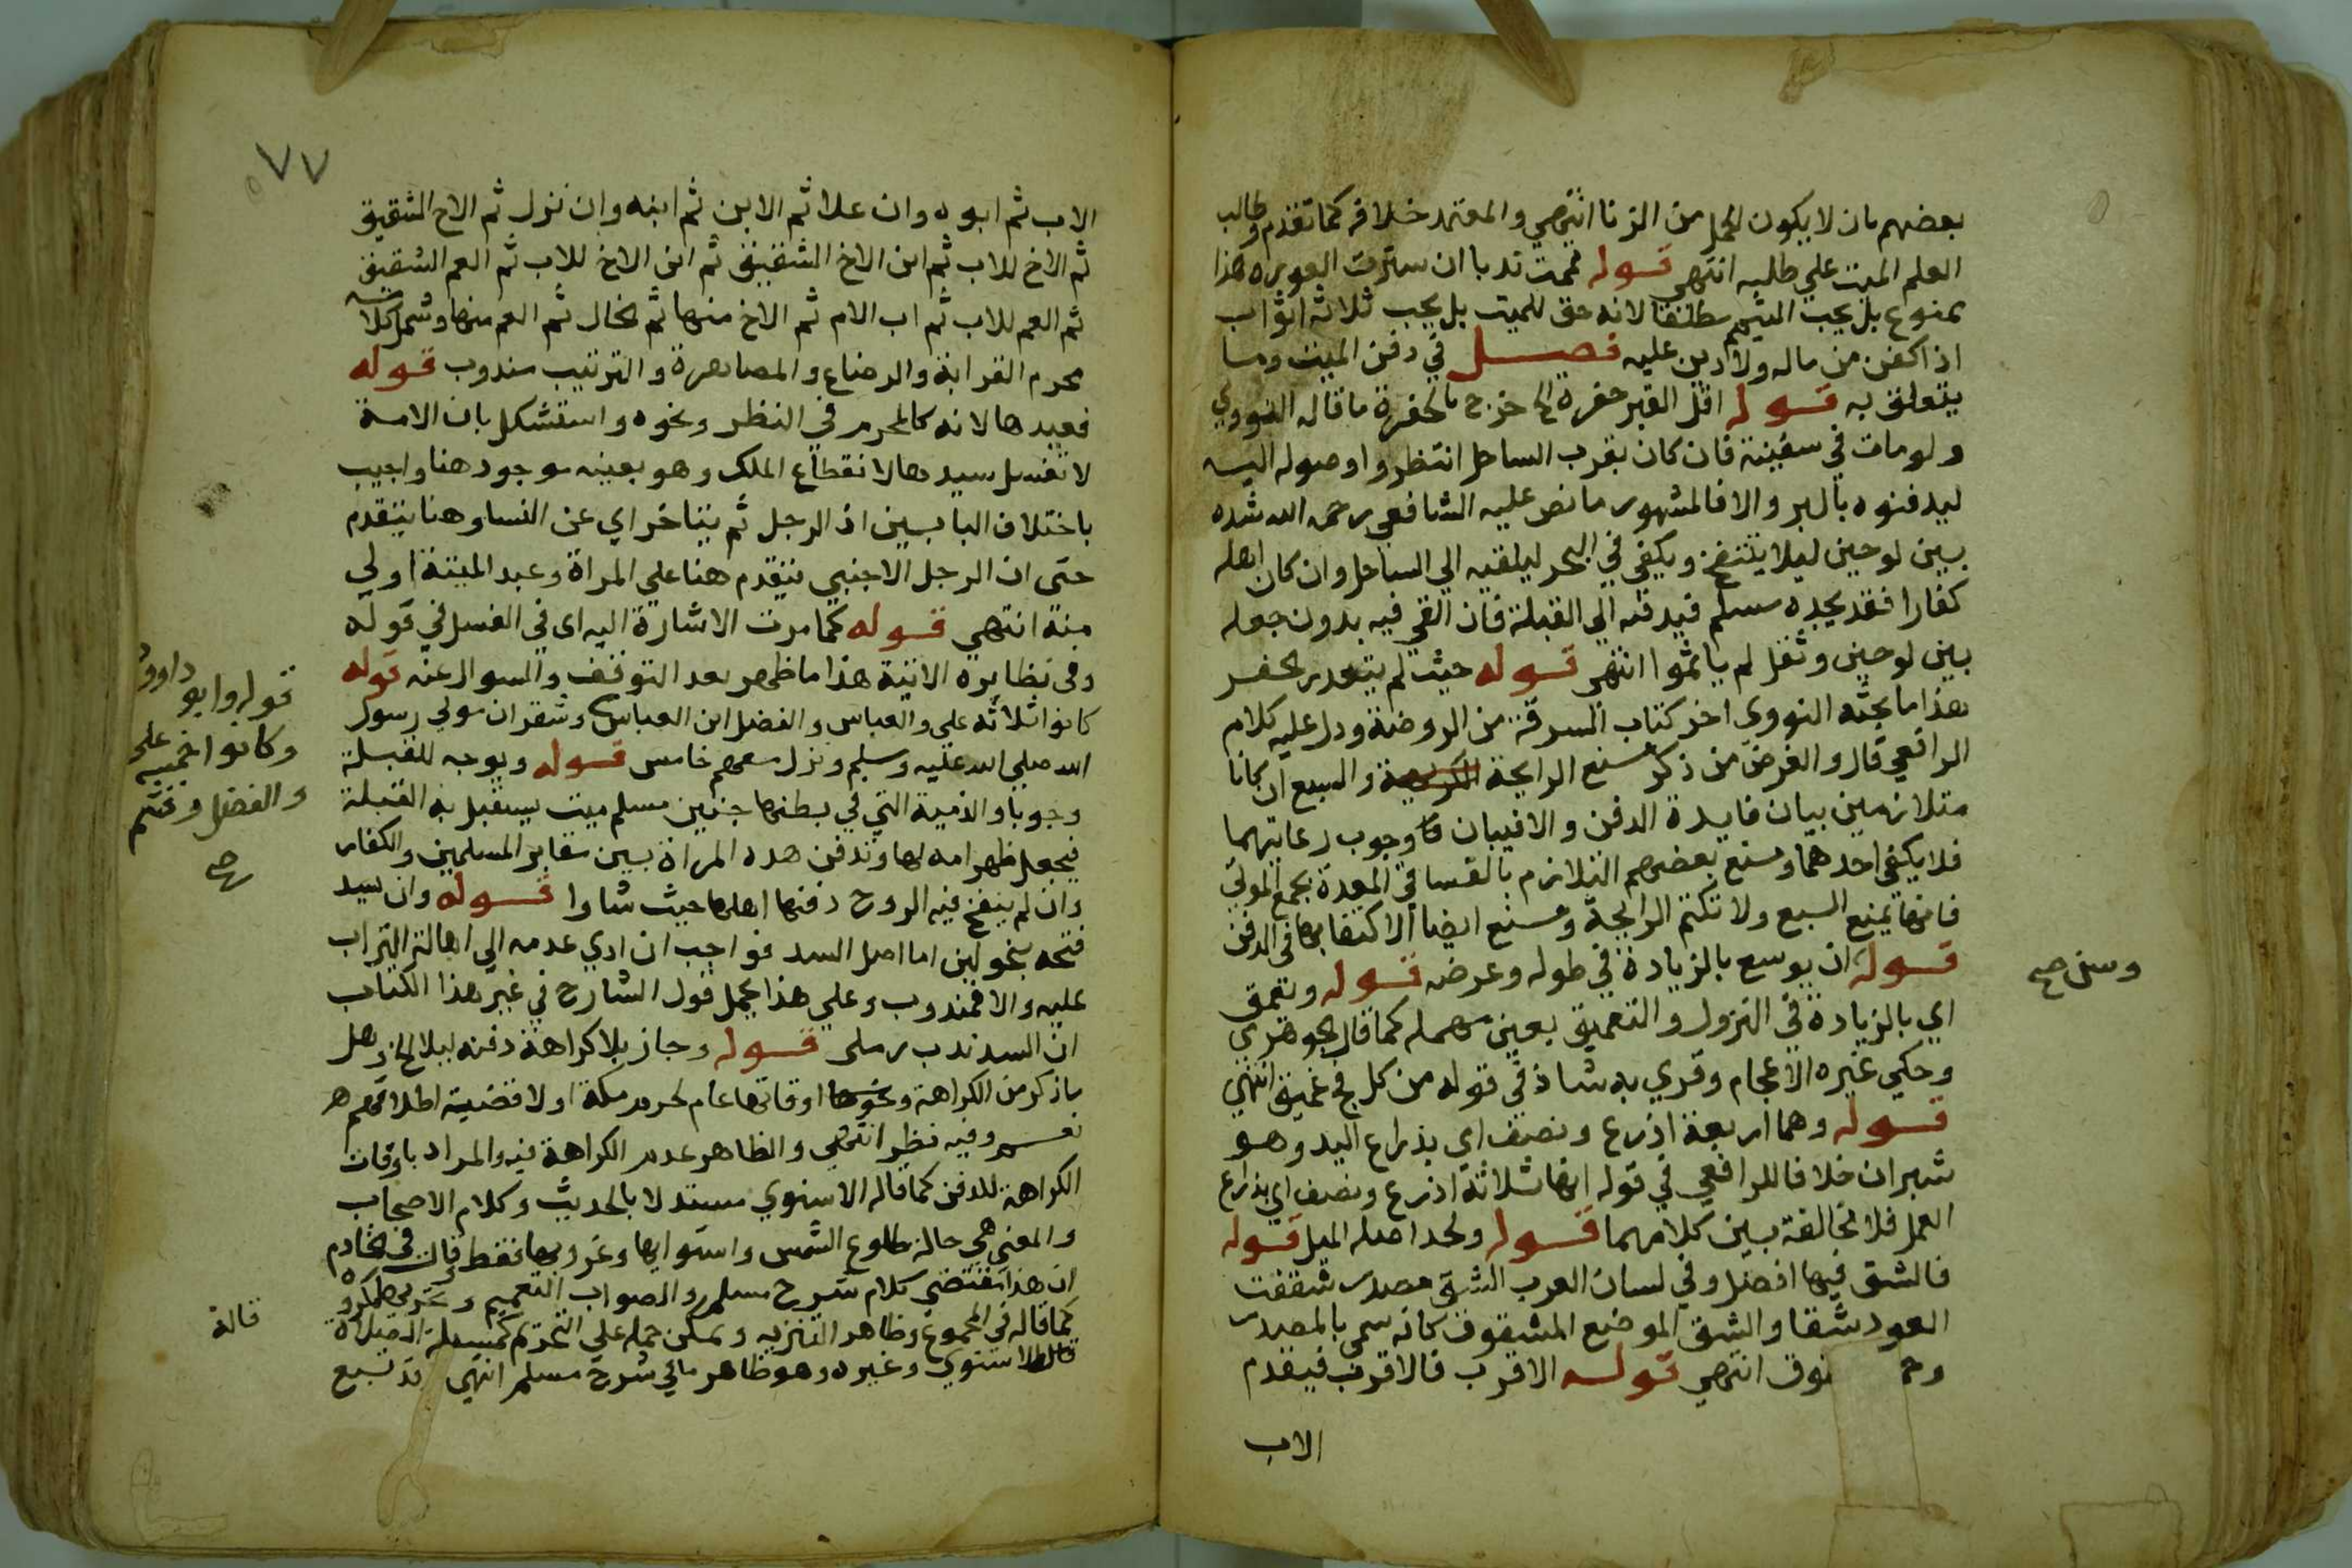 بعضهم بان لا يكون الحمل من الزنا انتهي والمعتمد خلافه كما تقدم وطالب
العلم الميت علي طلبه انتهي قوله فمت ندبا ان سترت العوره هذا
ممنوع بل يجب التيمم مطلقا لانه حق للميت بل يجب ثلاثة اثواب
اذا كفن من ماله ولا دين عليه فصل في دفن الميت وما
يتعلق به قوله اقل القبر حفرة الخ خرج بالحفرة ما قاله النووي
ولو مات في سفينة فان كان بقرب الساحل انتظروا وصوله اليه
ليدفنوه بالبر والا فالمشهور ما نص عليه الشافعي رحمه الله شده
بين لوحين ليلا ينتفخ ويلقي في البحر ليلقيه الي الساحل وان كان اهله
كفارا فقد يجده مسلم فيدفنه الي القبلة فان القي فيه بدون جعله
بين لوحين وثقل لم ياثموا انتهي قوله حيث لم يتعدر الحفر
هذا ما بحثه النووي اخر كتاب السرقة من الروضة ودل عليه كلام
الرافعي قال والغرض من ذكر منع الرايحة الكريهة والسبع ان كانا
متلازمين بيان فايدة الدفن والا فبيان وجوب رعايتهما
فلا يكفي احدهما ومنع بعضهم التلازم بالفساقي المعدة لجمع الموتي
فانها تمنع السبع ولا تكتم الرايحة ومنع ايضا الاكتفا بها في الدفن
قوله ان يوسع بالزيادة في طوله وعرضه قوله ويعمق
اي بالزيادة في النزول والتعميق بعين مهمله كما قال الجوهري
وحكي غيره الاعجام وقري به شاذ في قوله من كل فج غميق انتهي
قوله وهما اربعة اذرع ونصف اي بذراع اليد وهو
شبران خلافا للرافعي في قوله انها ثلاثة اذرع ونصف اي بذراع
العمل فلا مخالفة بين كلامهما قوله ولحد اصله الميل قوله
فالشق فيها افضل وفي لسان العرب الشق مصدر شققت
العود شقا والشق الموضع المشقوق كانه سمي بالمصدر
وق انتهي قوله الاقرب فالاقرب فيقدم
الاب
وسن صح
٧٧
الاب ثم ابوه وان علا ثم الابن ثم ابنه وان نزل ثم الاخ الشقيق
ثم الاخ للاب ثم ابن الاخ الشقيق ثم ابن الاخ للاب ثم العم الشقيق
ثم العم للاب ثم اب الام ثم الاخ منها ثم الخال ثم العم منها وشمل كلامه
محرم القرابة والرضاع والمصاهرة والترتيب مندوب قوله
فعبدها لانه كالمحرم في النظر ونحوه واستشكل بان الامة
لا تغسل سيدها لانقطاع الملك وهو بعينه موجود هنا واجيب
باختلاف البابين اذ الرجل ثم يتاخر اي عن النسا وهنا يتقدم
حتى ان الرجل الاجنبي يتقدم هنا علي المراة وعبد الميتة اولي
منه انتهي قوله كما مرت الاشارة اليه اي في الغسل في قوله
وفي نظايره الاتية هذا ما ظهر بعد التوقف والسوال عنه قوله
كانوا ثلاثة علي والعباس والفضل ابن العباس وشقران مولي رسول
الله صلي الله عليه وسلم ونزل معهم خامس قوله ويوجه للقبلة
وجوبا والذمية التي في بطنها جنين مسلم ميت يستقبل به القبلة
فيجعل ظهر امه لها وتدفن هده المراة بين مقابر المسلمين والكفار
وان لم ينفخ فيه الروح دفنها اهلها حيث شاوا قوله وان يسد
فتحه بنحو لبن اما اصل السد فواجب ان ادي عدمه الي اهالة التراب
عليه والا فمندوب وعلي هذا يحمل قول الشارح في غير هذا الكتاب
ان السد ندب رملي قوله وجاز بلا كراهة دفنه ليلا الخ وهل
ماذكر من الكراهة ونحوها اوقاتها عام لحرم مكة او لا قضية اطلاقهم
نعم وفيه نظر انتهي والظاهر عدم الكراهة فيه والمراد باوقات
الكراهة للدفن كما قاله الاسنوي مستدلا بالحديث وكلام الاصحاب
والمعني هي حالة طلوع الشمس واستوايها وغروبها فقط قال في الخادم
ان هذا مقتضي كلام شرح مسلم والصواب التعميم
كما قاله في المجموع وظاهر التنزيه ويمكن حمله علي التحريم كمسيلة الصلاة
الاسنوي وغيره وهو ظاهر ما في شرح مسلم انتهي قد تسبع
قوله وابو داوود
وكانوا خمسة علي
والفضل وقثم
صح
قاله